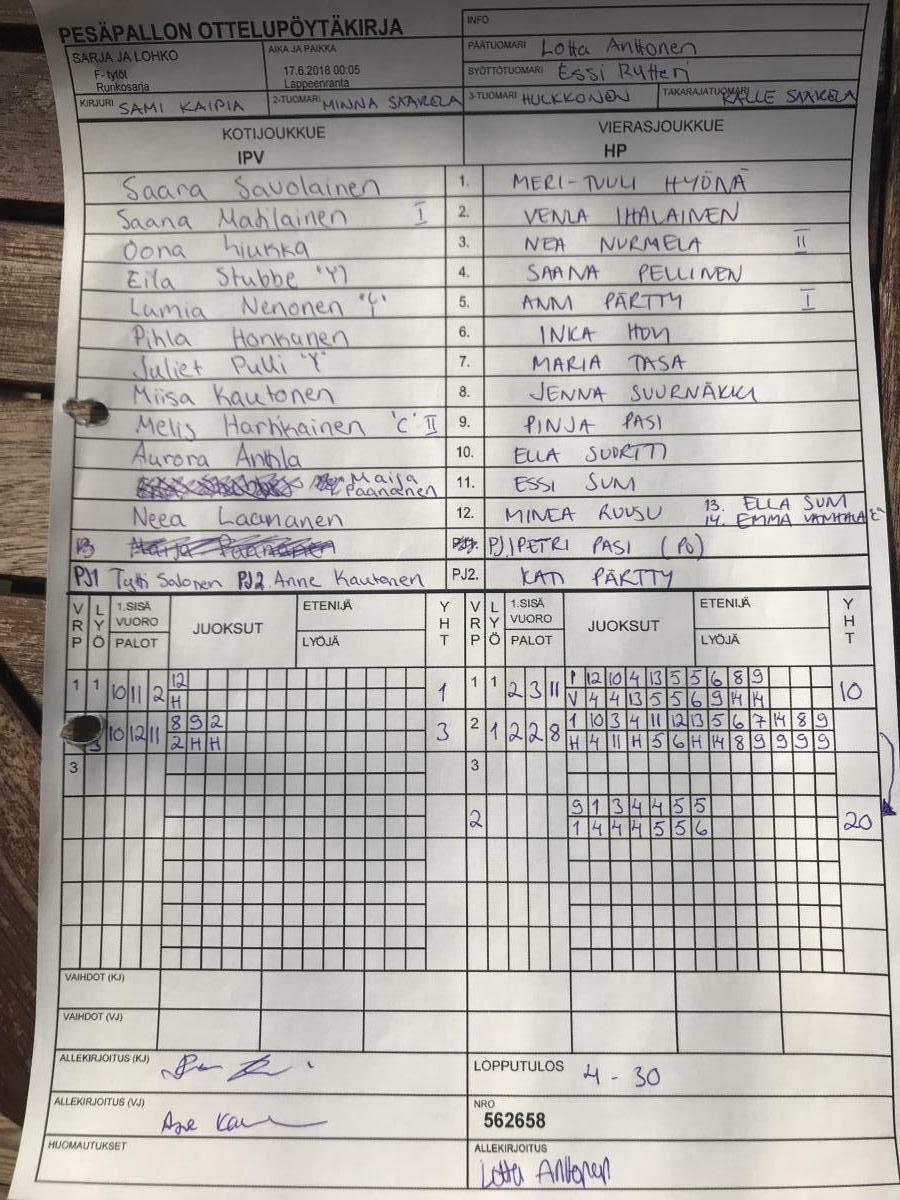 PESÄPALLON OTTELUPÖYTÄKIRJA
INFO
SARJA JA LOHKO
F- tytöt
Runkosarja
AIKA JA PAIKKA
17.6.2018 00:05
Lappeenranta
PÄÄTUOMARI Lotta Anttonen
SYÖTTÖTUOMARI Essi Rytteri
KIRJURI SAMI KAIPIA
2-TUOMARI MINNA SAARELA
3-TUOMARI HULKKONEN
TAKARAJATUOMARI KALLE SAARELA
KOTIJOUKKUE
IPV
VIERASJOUKKUE
HP
Saara Savolainen 1. MERI-TUULI HYÖNÄ
Saana Matilainen I 2. VENLA IHALAINEN
Oona Liukka 3. NEA NURMELA II
Eila Stubbe 'Y' 4. SAANA PELLINEN
Lumia Nenonen 5. ANNI PÄRTTY I
Pihla Honkanen 6. INKA
Juliet Pulli 'Y' 7. MARIA TASA
Miisa Kautonen 8. JENNA SUURNÄKKI
Melis Harhkainen 'C' II 9. PINJA PASI
Aurora Anttila 10. ELLA SUORTTI
Maija Paananen 11. ESSI SUNI
Neea Laamanen 12. MINEA RUUSU 13. ELLA SUNI
14. EMMA
13 Marja Paananen PJ1 PETRI PASI (PO)
PJ1 Tytti Salonen PJ2 Anne Kautonen PJ2. KATI PÄRTTY
VRP LYÖ 1.SISÄ VUORO PALOT JUOKSUT ETENIJÄ LYÖJÄ YHT
VRP LYÖ 1.SISÄ VUORO PALOT JUOKSUT ETENIJÄ LYÖJÄ YHT
1 1 10 11 2 12 1
H
1 1 2 3 11 1 12 10 4 13 5 5 6 8 9 10
V 4 4 13 5 5 6 9 14 14
3 10 12 11 8 9 2 3
2 H H
2 1 2 2 8 1 10 3 4 11 12 13 5 6 7 14 8 9
H 4 11 H 5 6 H 14 8 9 9 9 9
3
3
2 9 1 3 4 4 5 5 20
1 4 4 4 5 5 6
VAIHDOT (KJ)
VAIHDOT (VJ)
ALLEKIRJOITUS (KJ)
LOPPUTULOS 4 - 30
ALLEKIRJOITUS (VJ)
NRO
562658
HUOMAUTUKSET
ALLEKIRJOITUS
Lotta Anttonen